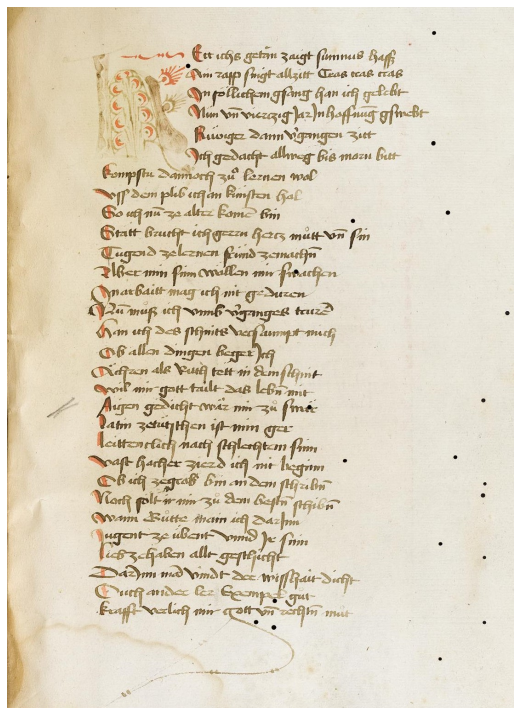 Ett ichs getan zaigt sumnus hass
Ain rapp singt allzitt Cras cras cras
In söllichem gsang han ich gelebt
Nun vñ vierzig Jar In hoffnūg gstrebt
Rüwiger dann vgangen zitt
Ich gedacht allweg bis morn bitt
kompstu dannoch zů lernen wol
Vss dem plib ich an künsten hol
So ich nū ze alter komē bin
Statt brucht ich gern hertz můtt vñ sin
Tugend ze lernen fründ zemachñ
Aber min sinn wöllen mir swachen
In arbaitt mag ich nit geduren
Nū můß ich vmb vganges truren
han ich des schnitts versaumpt mich
Ob allen dingen beger Ich
Aichren als Ruth tett in dem schnitt
wil mir gott tailt das lebñ mit
Aigen gedicht wär mir zů swär
latin zetütschen ist min ger
leittentlich nach schlechtem sinn
vast hocher zierd ich nit beginn
Ob ich zegrob bin an dem schribñ
Noch solt ir mir zů dem bestñ schibñ
wann Nütte main ich dar Inn
Tugent ze übent vnnd Ir sinn
lieb zehaben allt geschicht
Dar Inn mā vindt der wisshait dicht
Ouch ander ler Exempel gůt
krafft verlich mir gott vñ rechtñ můt